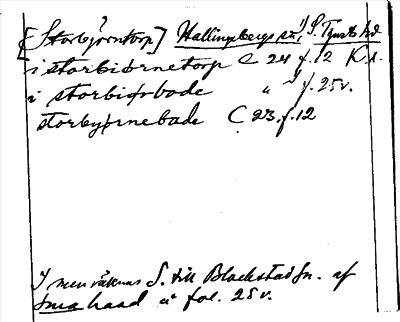 [Storbjörntorp] ? Hallingebergs sn, S. Tjusts hd
i storbiørnetorp C 24 f. 12 K.r.
i storbiørbode " " f. 25v.
storbyørnebode C 23. f. 12
I men räknas S. till Blackstad sn. af
Smahaad " fol. 25v.